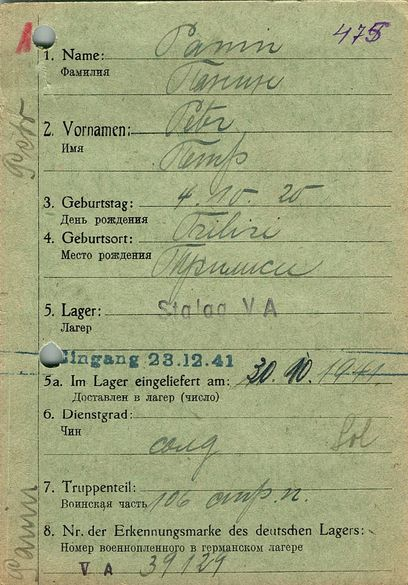 475
1. Name: Panin
Фамилия Панин
2. Vornamen: Petr
Имя Петр
3. Geburtstag: 4. 10. 20
День рождения
4. Geburtsort:
Место рождения
5. Lager: Stalag V A
Лагер
Eingang 23.12.41
5a. Im Lager eingeliefert am: 30. 10. 1941
Доставлен в лагер (число)
6. Dienstgrad: Sol
Чин солд
7. Truppenteil:
Воинская часть 106 стр. п.
8. Nr. der Erkennungsmarke des deutschen Lagers:
Номер военнопленного в германском лагере
V A 39129
Petr
Panin